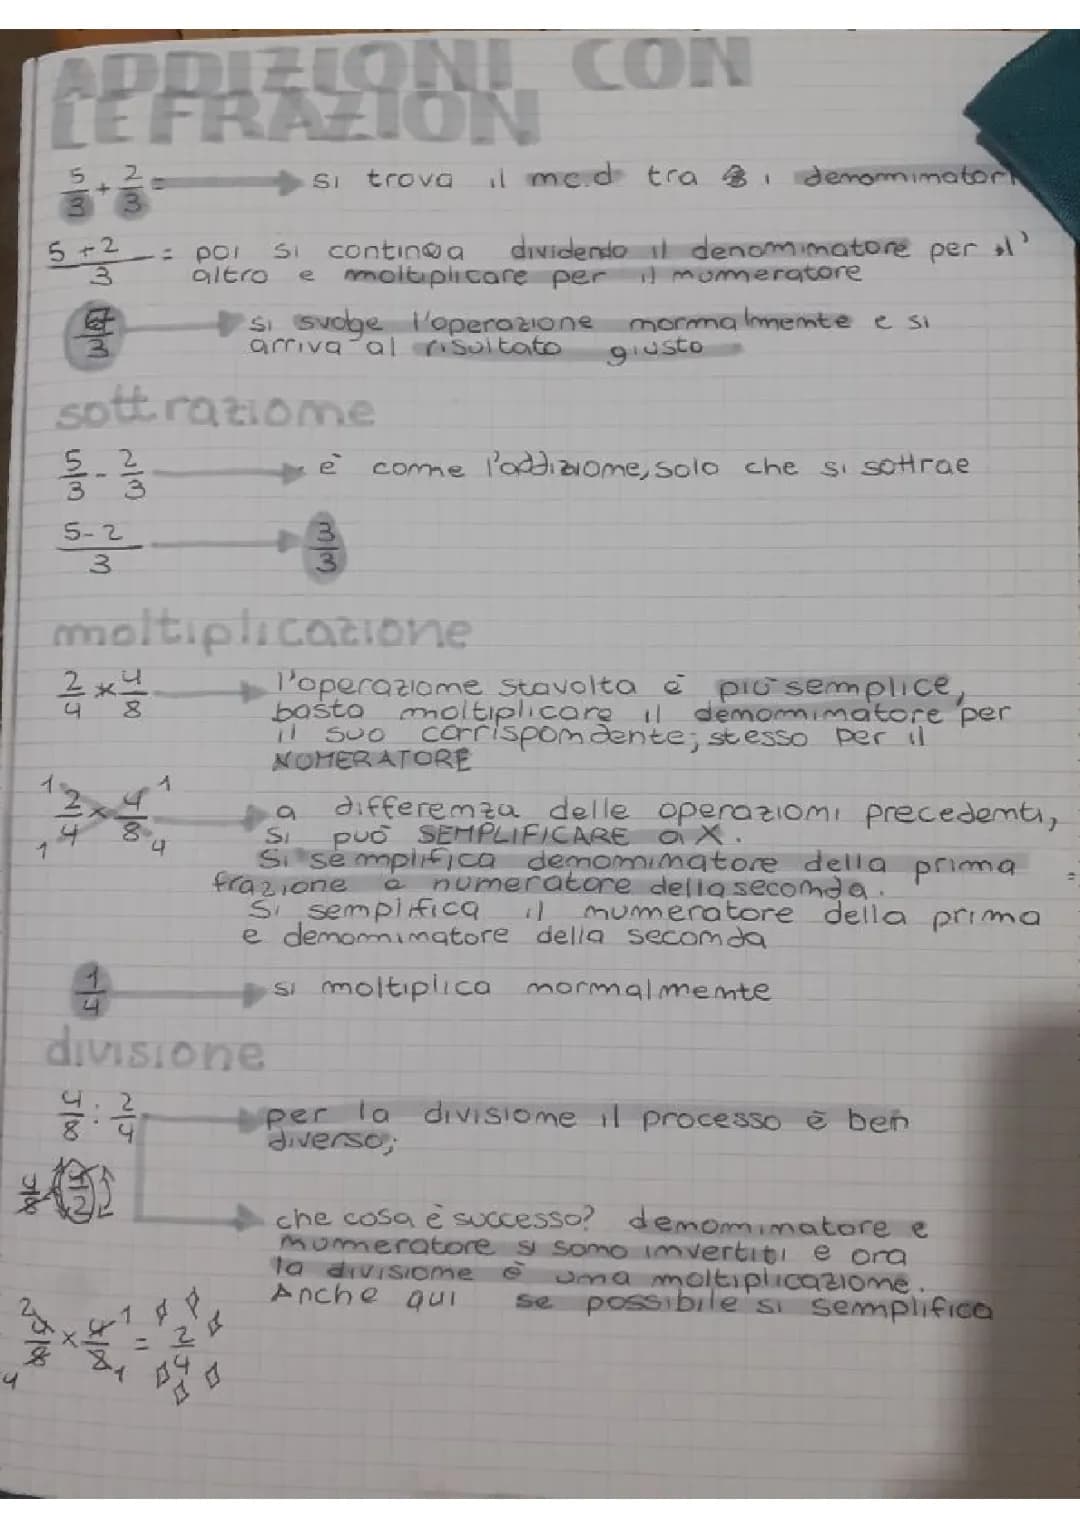 ADDIZIONI CON
LE FRAZION
5/3 + 2/3 = si trova il mc.d tra i denomimatori
5+2/3 = poi si continua dividendo il denomimatore per l'
altro e moltiplicare per il mumeratore
7/3 si svolge l'operazione mormalmemte e si
arriva al risultato giusto
sottraziome
5/3 - 2/3 è come l'addiziome, solo che si sottrae
5-2/3 3/3
moltiplicazione
2/4 x 4/8 l'operaziome stavolta è più semplice,
basta moltiplicare il demomimatore per
il suo corrispomdente; stesso per il
NUMERATORE
1 2/4 1 x 1 4/8 4 a differemza delle operaziomi precedemti,
si può SEMPLIFICARE a X.
Si semplifica demomimatore della prima
frazione e numeratore della secomda.
Si sempifica il mumeratore della prima
e demomimatore della secomda
1/4 si moltiplica mormalmemte
divisione
4/8 : 2/4 per la divisiome il processo è ben
diverso;
4/8 x 4/2
che cosa è successo? demomimatore e
mumeratore si somo imvertiti e ora
la divisiome è uma moltiplicaziome.
Anche qui se possibile si semplifica
2 4/8 4 x 4/8 1 1 = 2/4